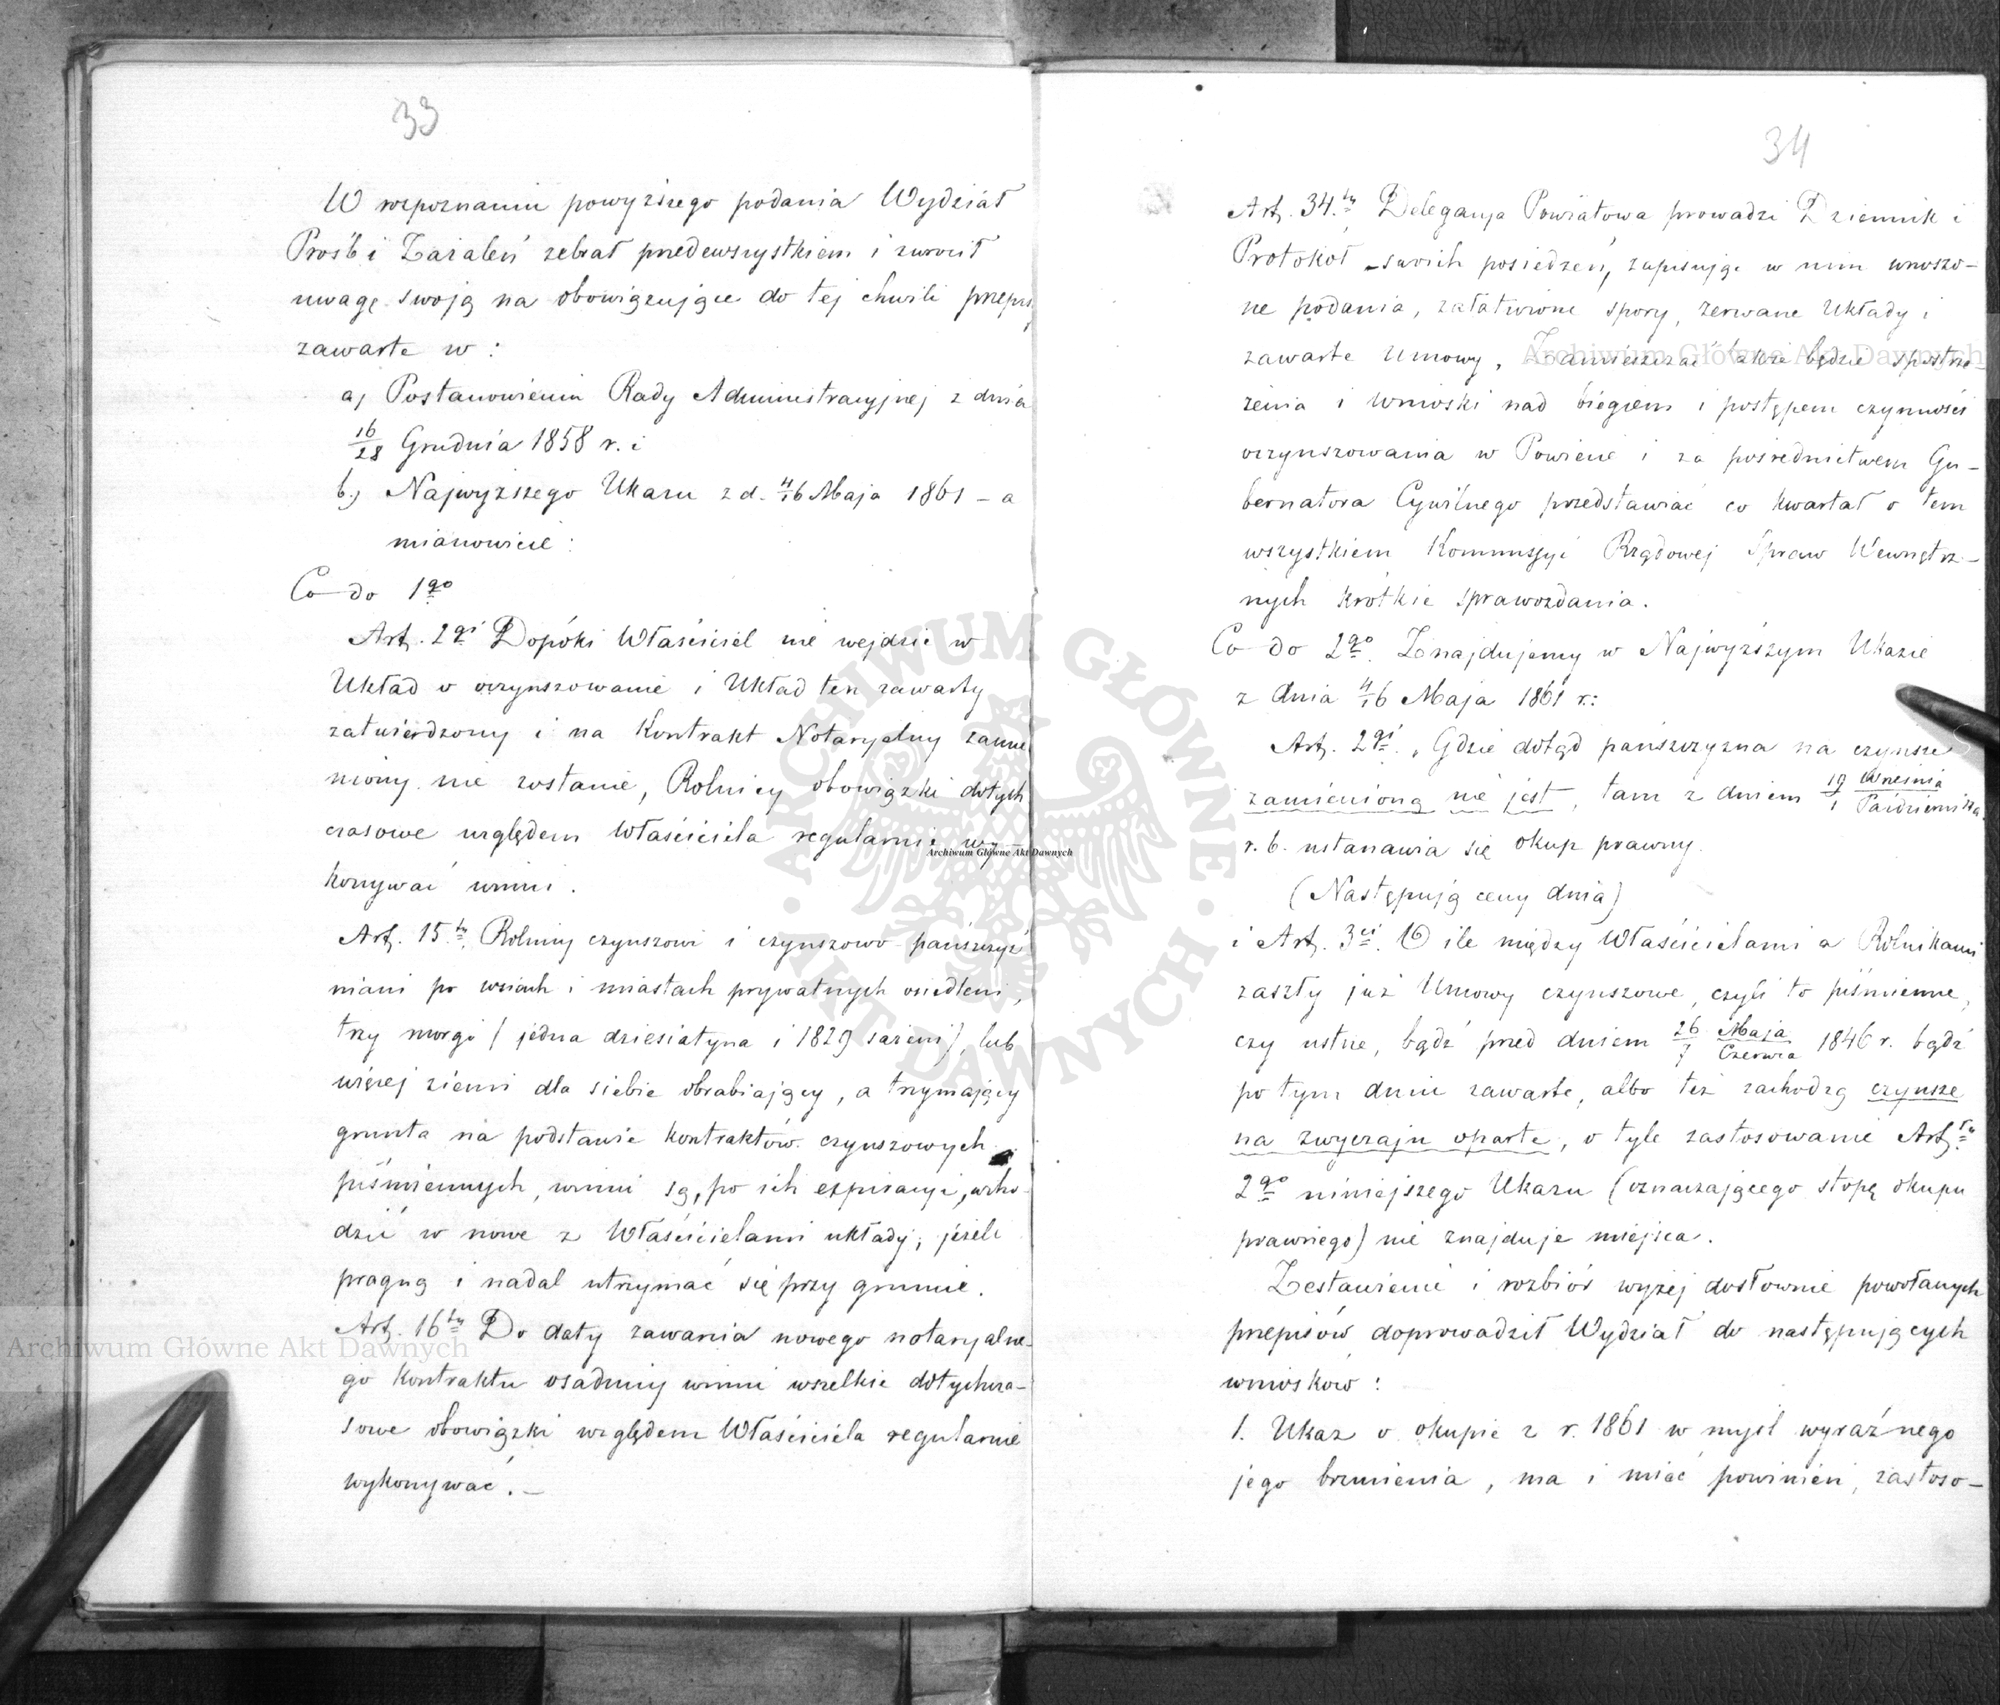 33
W rozpoznaniu powyższego podania Wydział
Prośb i Zażaleń zebrał przedewszystkiem i zwrócił
uwagę swoją na obowiązujące do tej chwili przepisy
zawarte w :
a) Postanowieniu Rady Administracyjnej z dnia
16/28 Grudnia 1858 r. i
b) Najwyższego Ukazu z d. 4/16 Maja 1861 – a
mianowicie :
Co do 1go
Art. 2gi Dopóki Właściciel nie wejdzie w
Układ o oczynszowanie i Układ ten zawarty
zatwierdzony i na Kontrakt Notaryalny zamie
niony nie zostanie, Rolnicy obowiązki dotych
czasowe względem Właściciela regularnie wy–
konywać winni .
Art. 15ty Rolnicy czynszowi i czynszowo pańszczyź
niani po wsiach i miastach prywatnych osiedleni,
trzy morgi (jedna dziesiatyna i 1829 sażeni), lub
więcej ziemi dla siebie obrabiający, a trzymający
grunta na podstawie kontraktów czynszowych
piśmiennych, winni są, po ich expiracyi, wcho-
dzić w nowe z Właścicielami układy; jeżeli
pragną i nadal utrzymać się przy gruncie.
Art. 16ty Do daty zawarcia nowego notaryalne-
go Kontraktu osadnicy winni wszelkie dotychcza-
sowe obowiązki względem Właściciela regularnie
wykonywać. –
34
Art. 34.ty Delegacya Powiatowa prowadzi Dziennik i
Protokół swoich posiedzeń, zapisując w nim wnoszo–
ne podania, załatwione spory, zerwane Układy i
zawarte Umowy, Zamieszczać także będzie spostrze-
żenia i wnioski nad biegiem i postępem czynności
oczynszowania w Powiecie i za pośrednictwem Gu–
bernatora Cywilnego przedstawiać co kwartał o tem
wszystkiem Kommissyi Rządowej Spraw Wewnętrz–
nych krótkie sprawozdania.
Co do 2go. Znajdujemy w Najwyższym Ukazie
z dnia 4/16 Maja 1861 r.:
Art. 2gi. „Gdzie dotąd pańszczyzna na czynsze
zamienioną nie jest, tam z dniem 19/1 Września/Października
r. b. ustanawia się okup prawny.
(Następują ceny dnia)
i Art. 3ci. O ile między Właścicielami a Rolnikami
zaszły już Umowy czynszowe, czyli to piśmienne,
czy ustne, bądź przed dniem 26/7 Maja/Czerwca 1846 r. bądź
po tym dniu zawarte, albo też zachodzą czynsze
na zwyczaju oparte, o tyle zastosowanie Art.łu
2go niniejszego Ukazu (oznaczającego stopę okupu
prawnego) nie znajduje miejsca.
Zestawienie i rozbiór wyżej dosłownie powołanych
przepisów doprowadził Wydział do następujących
wniosków :
1. Ukaz o okupie z r. 1861 w myśl wyraźnego
jego brzmienia, ma i mieć powinien, zastoso–
Archiwum Główne Akt Dawnych
Archiwum Główne Akt Dawnych
Archiwum Główne Akt Dawnych
ARCHIWUM GŁÓWNE · AKT DAWNYCH ·